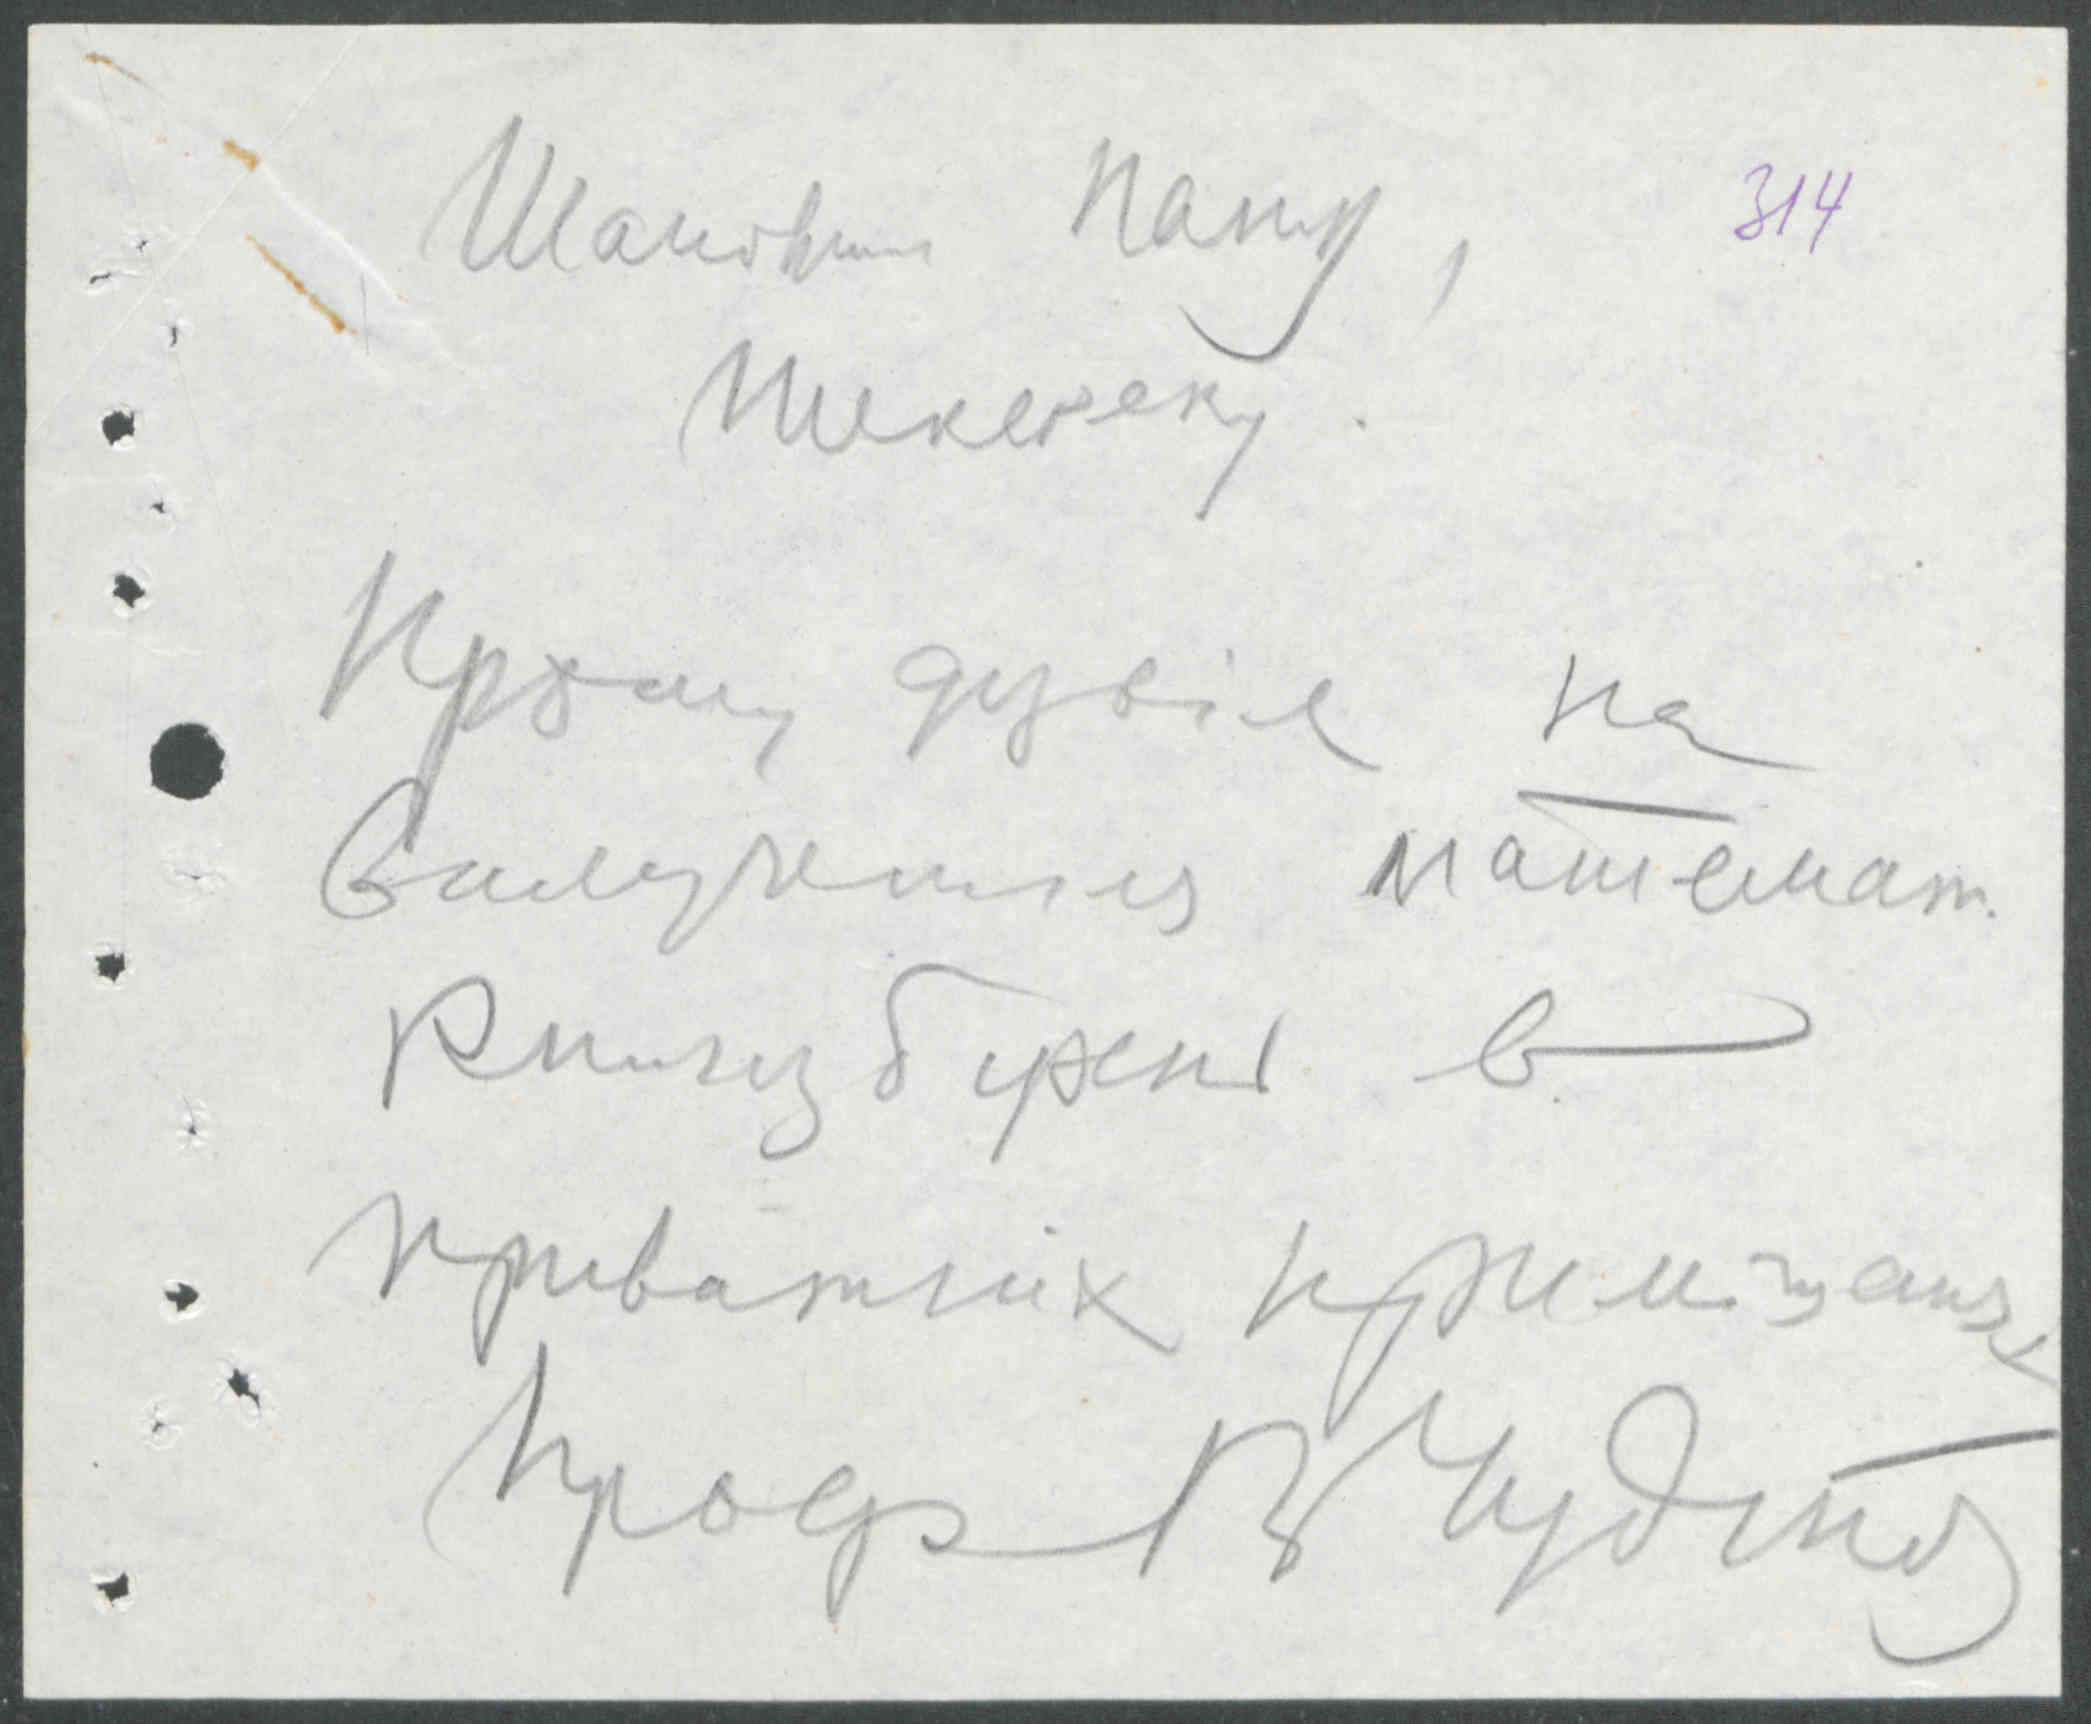 Шановний Пану, 314
Шекереку.
Прошу дозвіл на
вилучення математ.
книгозбірні в
приватніх приміщеннях
Проф В Чудінов